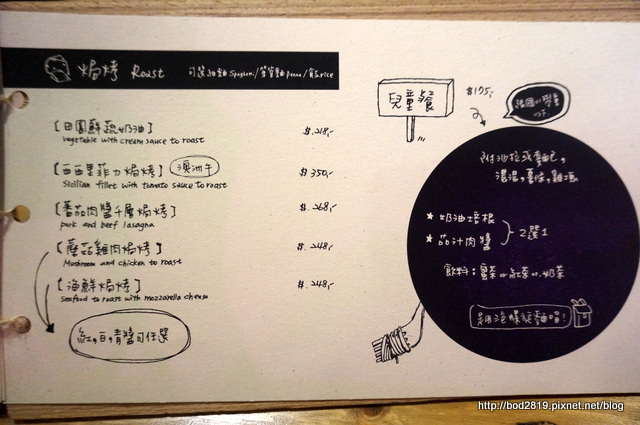 焗烤 Roast 可選油麵 Spaghetti/筆管麵 penne/飯 rice
[田園鮮蔬奶油] $.218,-
vegetable with cream sauce to roast
[西西里菲力焗烤] 澳洲牛 $.350,-
Sicilian fillet with tomato sauce to roast
[蕃茄肉醬千層焗烤] $.268,-
pork and beef lasagna
[蘑菇雞肉焗烤] $.248,-
Mushroom and chicken to roast
[海鮮焗烤] $.248,-
Seafood to roast with mozzarella cheese
紅,白,青醬可任選
兒童餐 $195,-
附沙拉或麵包,
濃湯,薯條,雞塊
★ 奶油培根
★ 茄汁肉醬
2選1
飲料:果茶or紅茶or奶茶
http://bod2819.pixnet.net/blog